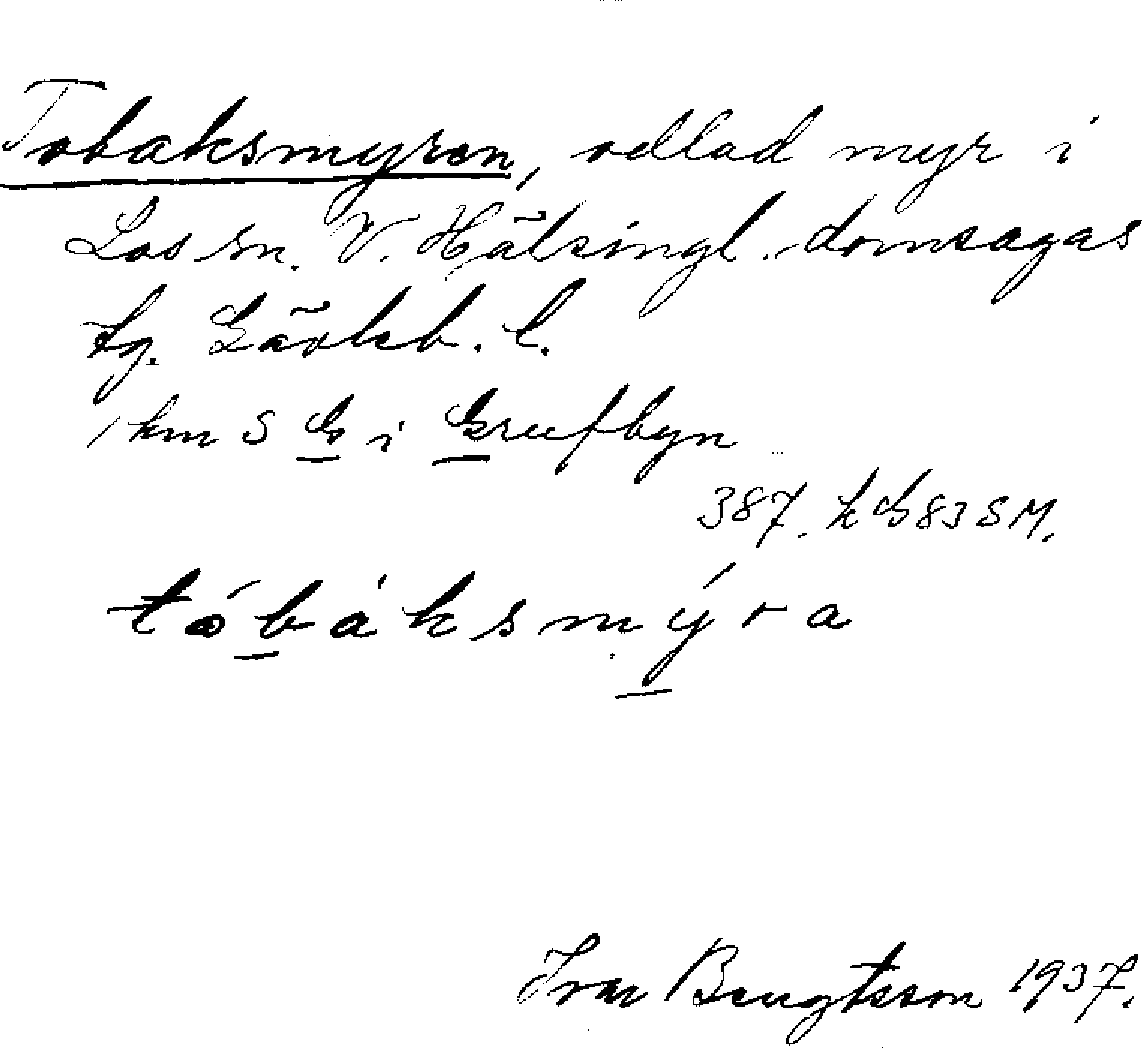 Tobaksmyren, odlad myr i
Los sn. V. Hälsingl. domsagas
tg. Gävleb. l.
1 km S G i Grufbyn
387. k G 83 SM.
tóbáksmýra
Ivar Bengtsson 1937.